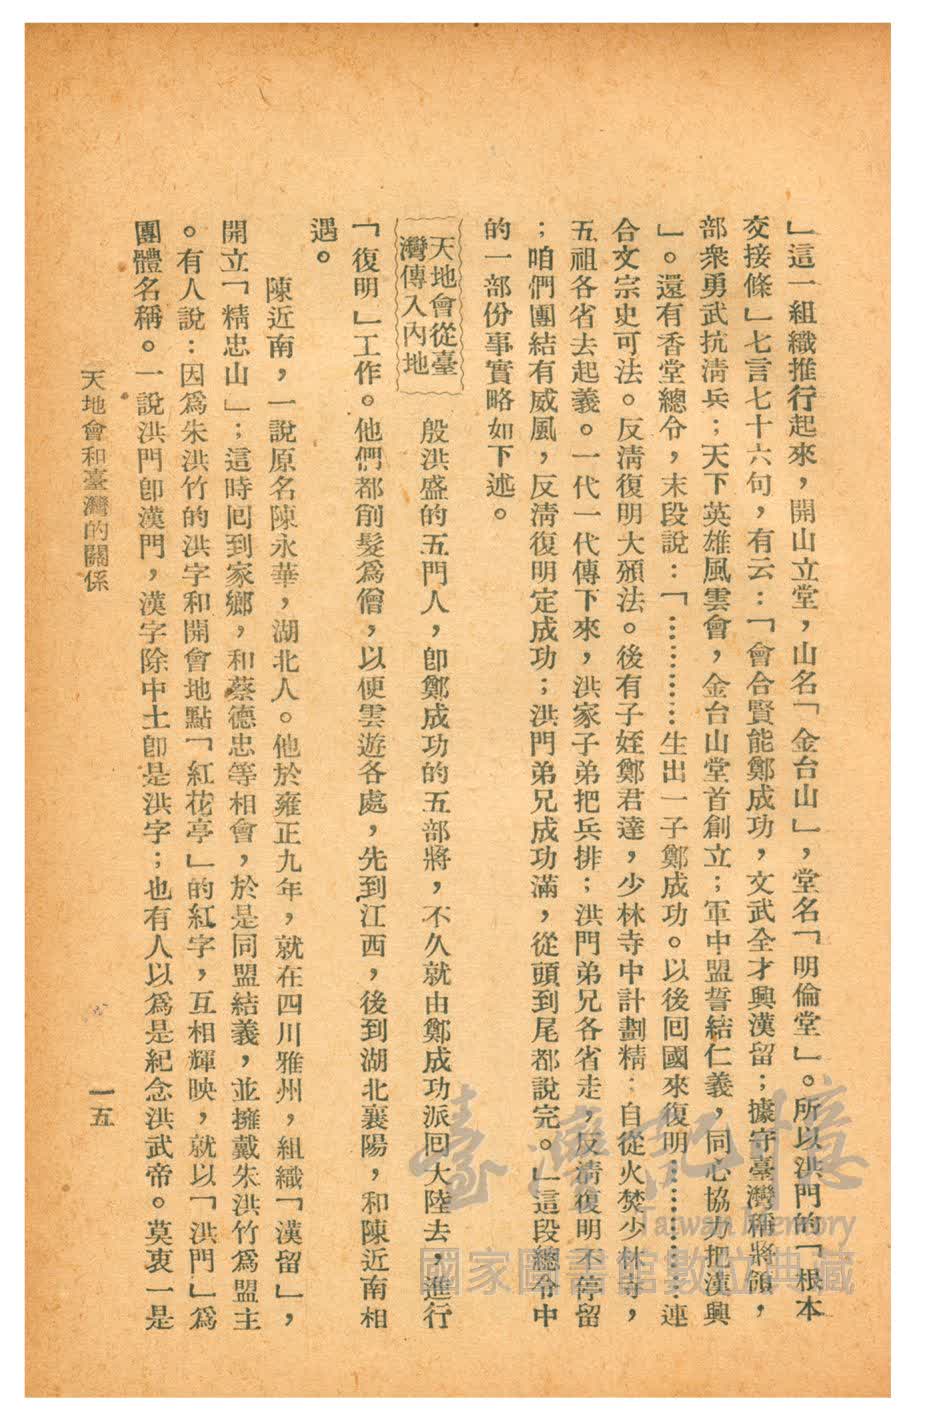 」這一組織推行起來，開山立堂，山名「金台山」，堂名「明倫堂」。所以洪門的「根本
交接條」七言七十六句，有云：「會合賢能鄭成功，文武全才興漢留；據守臺灣稱將領，
部衆勇武抗淸兵；天下英雄風雲會，金台山堂首創立；軍中盟誓結仁義，同心協力把漢興
」。還有香堂總令，末段說：「…………生出一子鄭成功。以後回國來復明…………連
合文宗史可法。反淸復明大頒法。後有子姪鄭君達，少林寺中計劃精；自從火焚少林寺，
五祖各省去起義。一代一代傳下來，洪家子弟把兵排；洪門弟兄各省走，反淸復明不停留
；咱們團結有威風，反淸復明定成功；洪門弟兄成功滿，從頭到尾都說完。」這段總令中
的一部份事實略如下述。
天地會從臺
灣傳入內地
殷洪盛的五門人，卽鄭成功的五部將，不久就由鄭成功派回大陸去，進行
「復明」工作。他們都削髮爲僧，以便雲遊各處，先到江西，後到湖北襄陽，和陳近南相
遇。
陳近南，一說原名陳永華，湖北人。他於雍正九年，就在四川雅州，組織「漢留」，
開立「精忠山」；這時回到家鄉，和蔡德忠等相會，於是同盟結義，並擁戴朱洪竹爲盟主
。有人說：因爲朱洪竹的洪字和開會地點「紅花亭」的紅字，互相輝映，就以「洪門」爲
團體名稱。一說洪門卽漢門，漢字除中土卽是洪字；也有人以爲是紀念洪武帝。莫衷一是
天地會和臺灣的關係
一五
臺灣記憶
Taiwan Memory
國家圖書館數位典藏